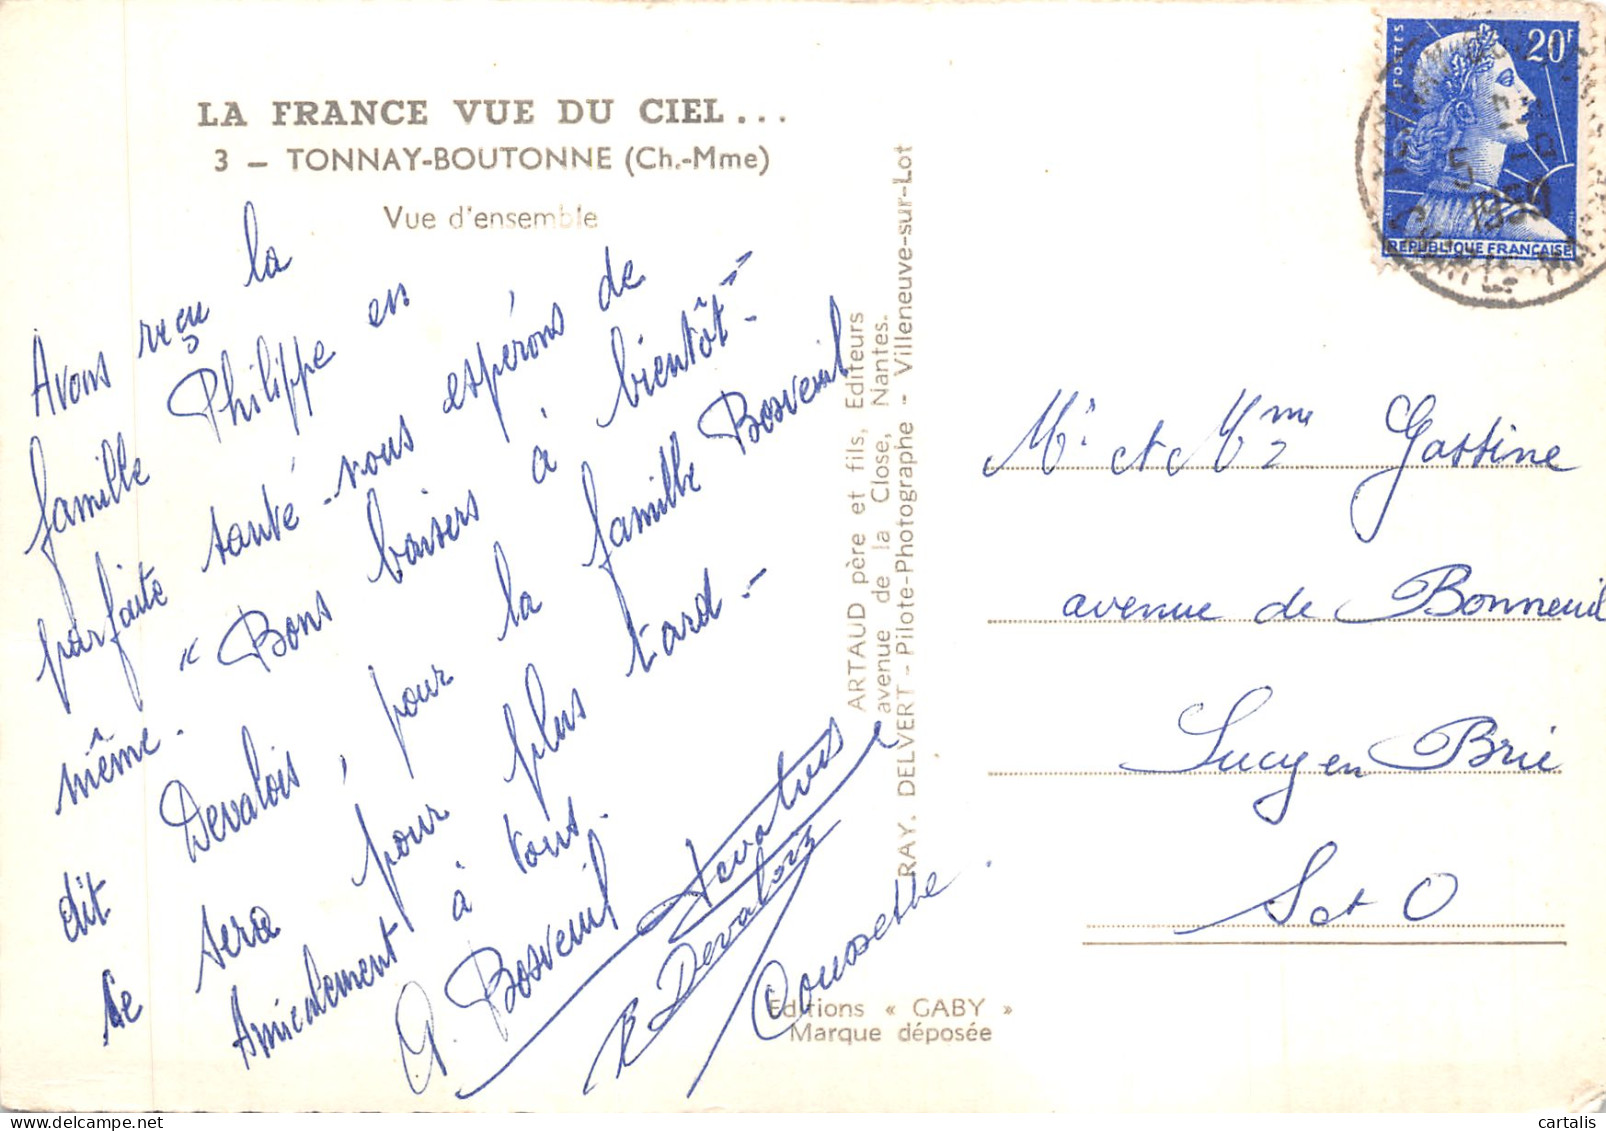 LA FRANCE VUE DU CIEL...
3 – TONNAY-BOUTONNE (Ch.-Mme)
Vue d'ensemble
Avons reçu la
famille Philippe en
parfaite santé - vous espérons de
même. - « Bons baisers à bientôt »-
dit Devalois, pour la famille Bosveuil
ce sera pour plus tard -
Amicalement à tous.
G. Bosveuil
R Devalois
ARTAUD père et fils, Editeurs
avenue de la Close, Nantes.
RAY. DELVERT - Pilote-Photographe - Villeneuve-sur-Lot
Editions « GABY »
Marque déposée
POSTES
20F
REPUBLIQUE FRANÇAISE
Mr et Mme Gassine
avenue de Bonneuil
Sucy en Brie
S et O
cartalis